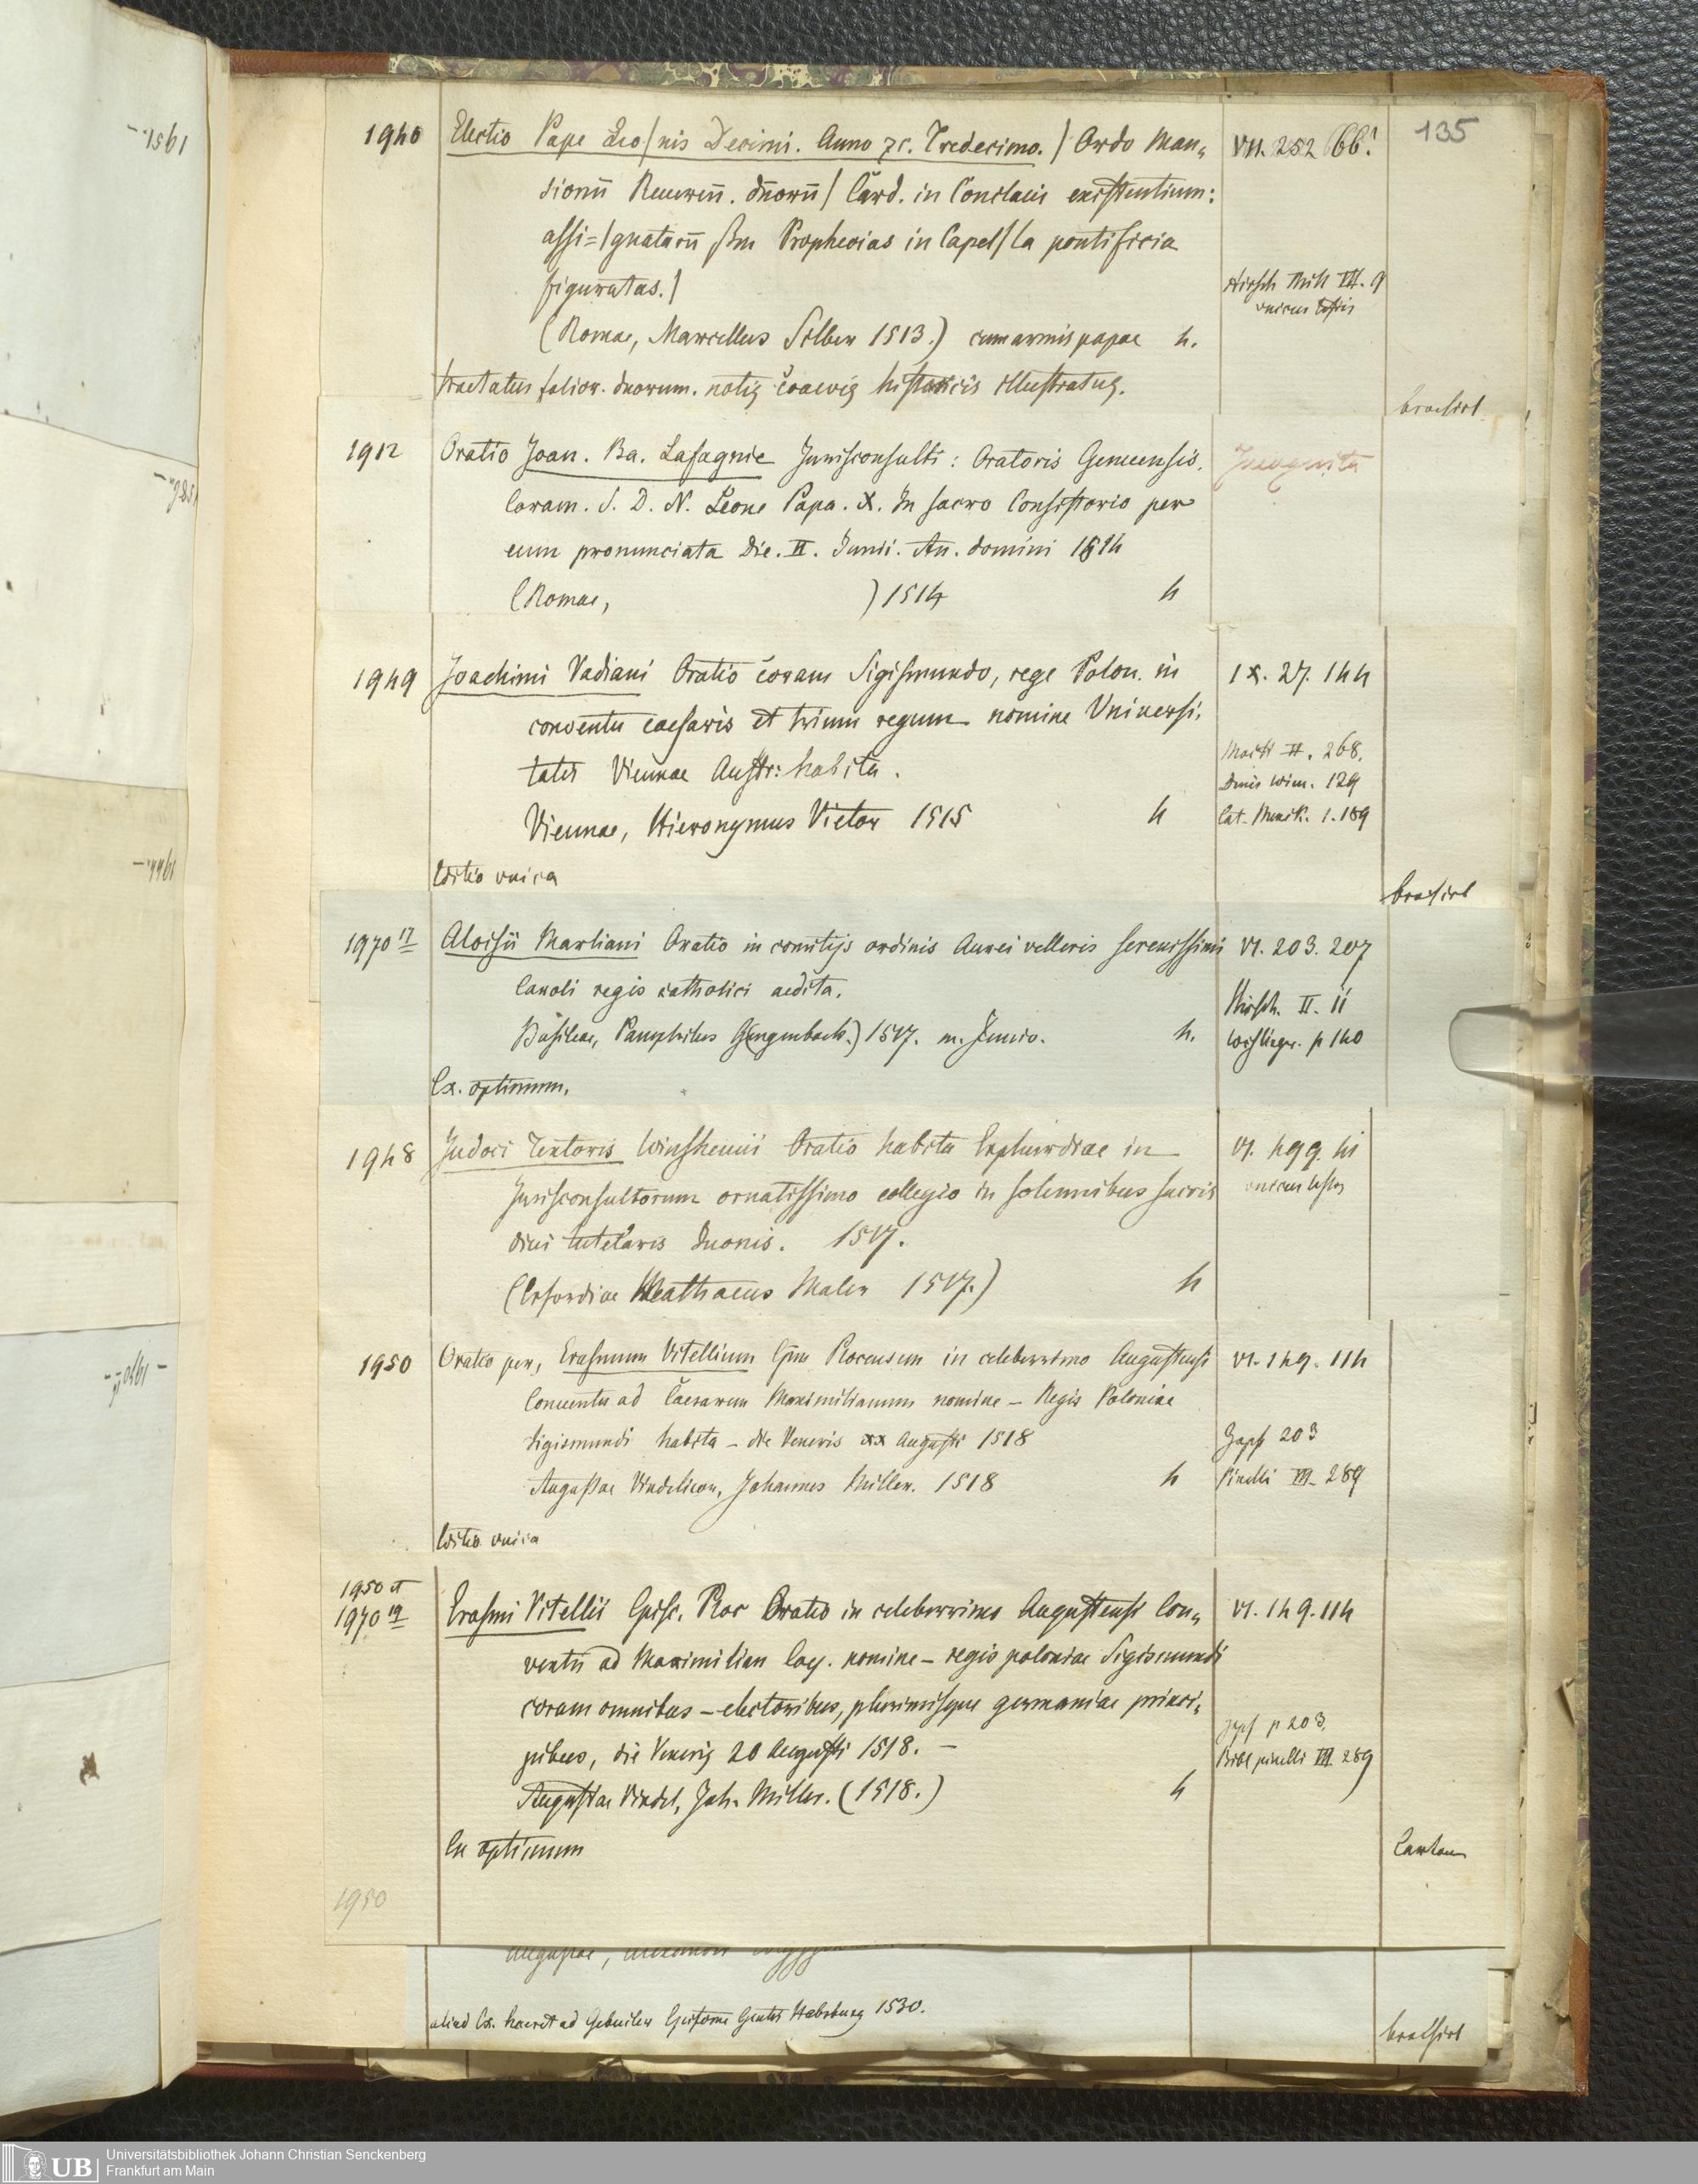 135
1940 Electio Pape Leo/nis Decimi. Anno ꝛc. Tredecimo. / Ordo Man„ VII. 252 66?
sionū Reueren̄. dn̄orū / Card. in Conclaui existentium:
assi=/gnatarū Prophecias in Capel/la pontificia
figuratas. / Hirsch Mill III. 9
(Romae, Marcellus Silber 1513.) cum armis papae 4. unicus testis
tractatus folior. duorum. notis coaevis historicis illustratus.
brochirt
1912 Oratio Joan. Ba. Lasagnie Jurisconsulti: Oratoris Genuensis. Incognita
Coram. S. D. N. Leone Papa. X. In sacro Consistorio per
eum pronunciata Die. II. Junii. An. domini 1514
(Romae, ) 1514 4
1949 Joachimi Vadiani Oratio coram Sigismundo, rege Polon. in IX. 27. 144
conventu caesaris et trium regum nomine Universi„
tatis Viennae Austr: habita. Mait II. 268.
Denis Wien. 129
Viennae, Hieronymus Victor 1515 4 Cat. 1. 189
Editio unica
brochirt
1970 17 Aloisii Marliani Oratio in comitijs ordinis Aurei velleris serenissimi VI. 203. 207
Caroli regis catholici aedita. Hirsch. II. 11
Basileae, Pamphilus G(engenbach.) 1517. m. Junio. 4. Wislinger. p 140
Ex. optimum.
1948 Judoci Textoris Winshemii Oratio habita Erphurdiae in VI. 499. 41
Jurisconsultorum ornatissimo collegio in solennibus sacris unicus testis
divi tutelaris Iuonis. 1517.
(Erfordiae Matthaeus Maler 1517.) 4
1950 Oratio per, Erasmum Vitellium Ep̄m Plocensem in celeberrimo Augustensi VI. 149. 114
Conuentu ad Caesarem Maximilianum nomine – Regis Poloniae
Sigismundi habita – die Veneris xx Augusti 1518 Zapf 203
Augustae Vindelicor, Johannes Miller. 1518 4 Pinelli III. 289
Editio unica
1950 et
1970 19 Erasmi Vitellii Episc. Ploc Oratio in celeberrimo Augustensi Con„ VI. 149. 114
ventu ad Maximilian Caes. nomine – regis poloniae Sigismundi
coram omnibus – electoribus, plurimisque germaniae princi„
Zapf p 203.
pibus, die Veneris 20 Augusti 1518. – Bibl pinelli III 289
Augustae Vindel, Joh. Miller. (1518.) 4
Ex optimum Carton
1950
aliud Ex. haeret ad Gebwiler Epitome Gentis Habsburg 1530.
brochirt
1951.–
1944.–
– 1970 17.–
UB Universitätsbibliothek Johann Christian Senckenberg
Frankfurt am Main